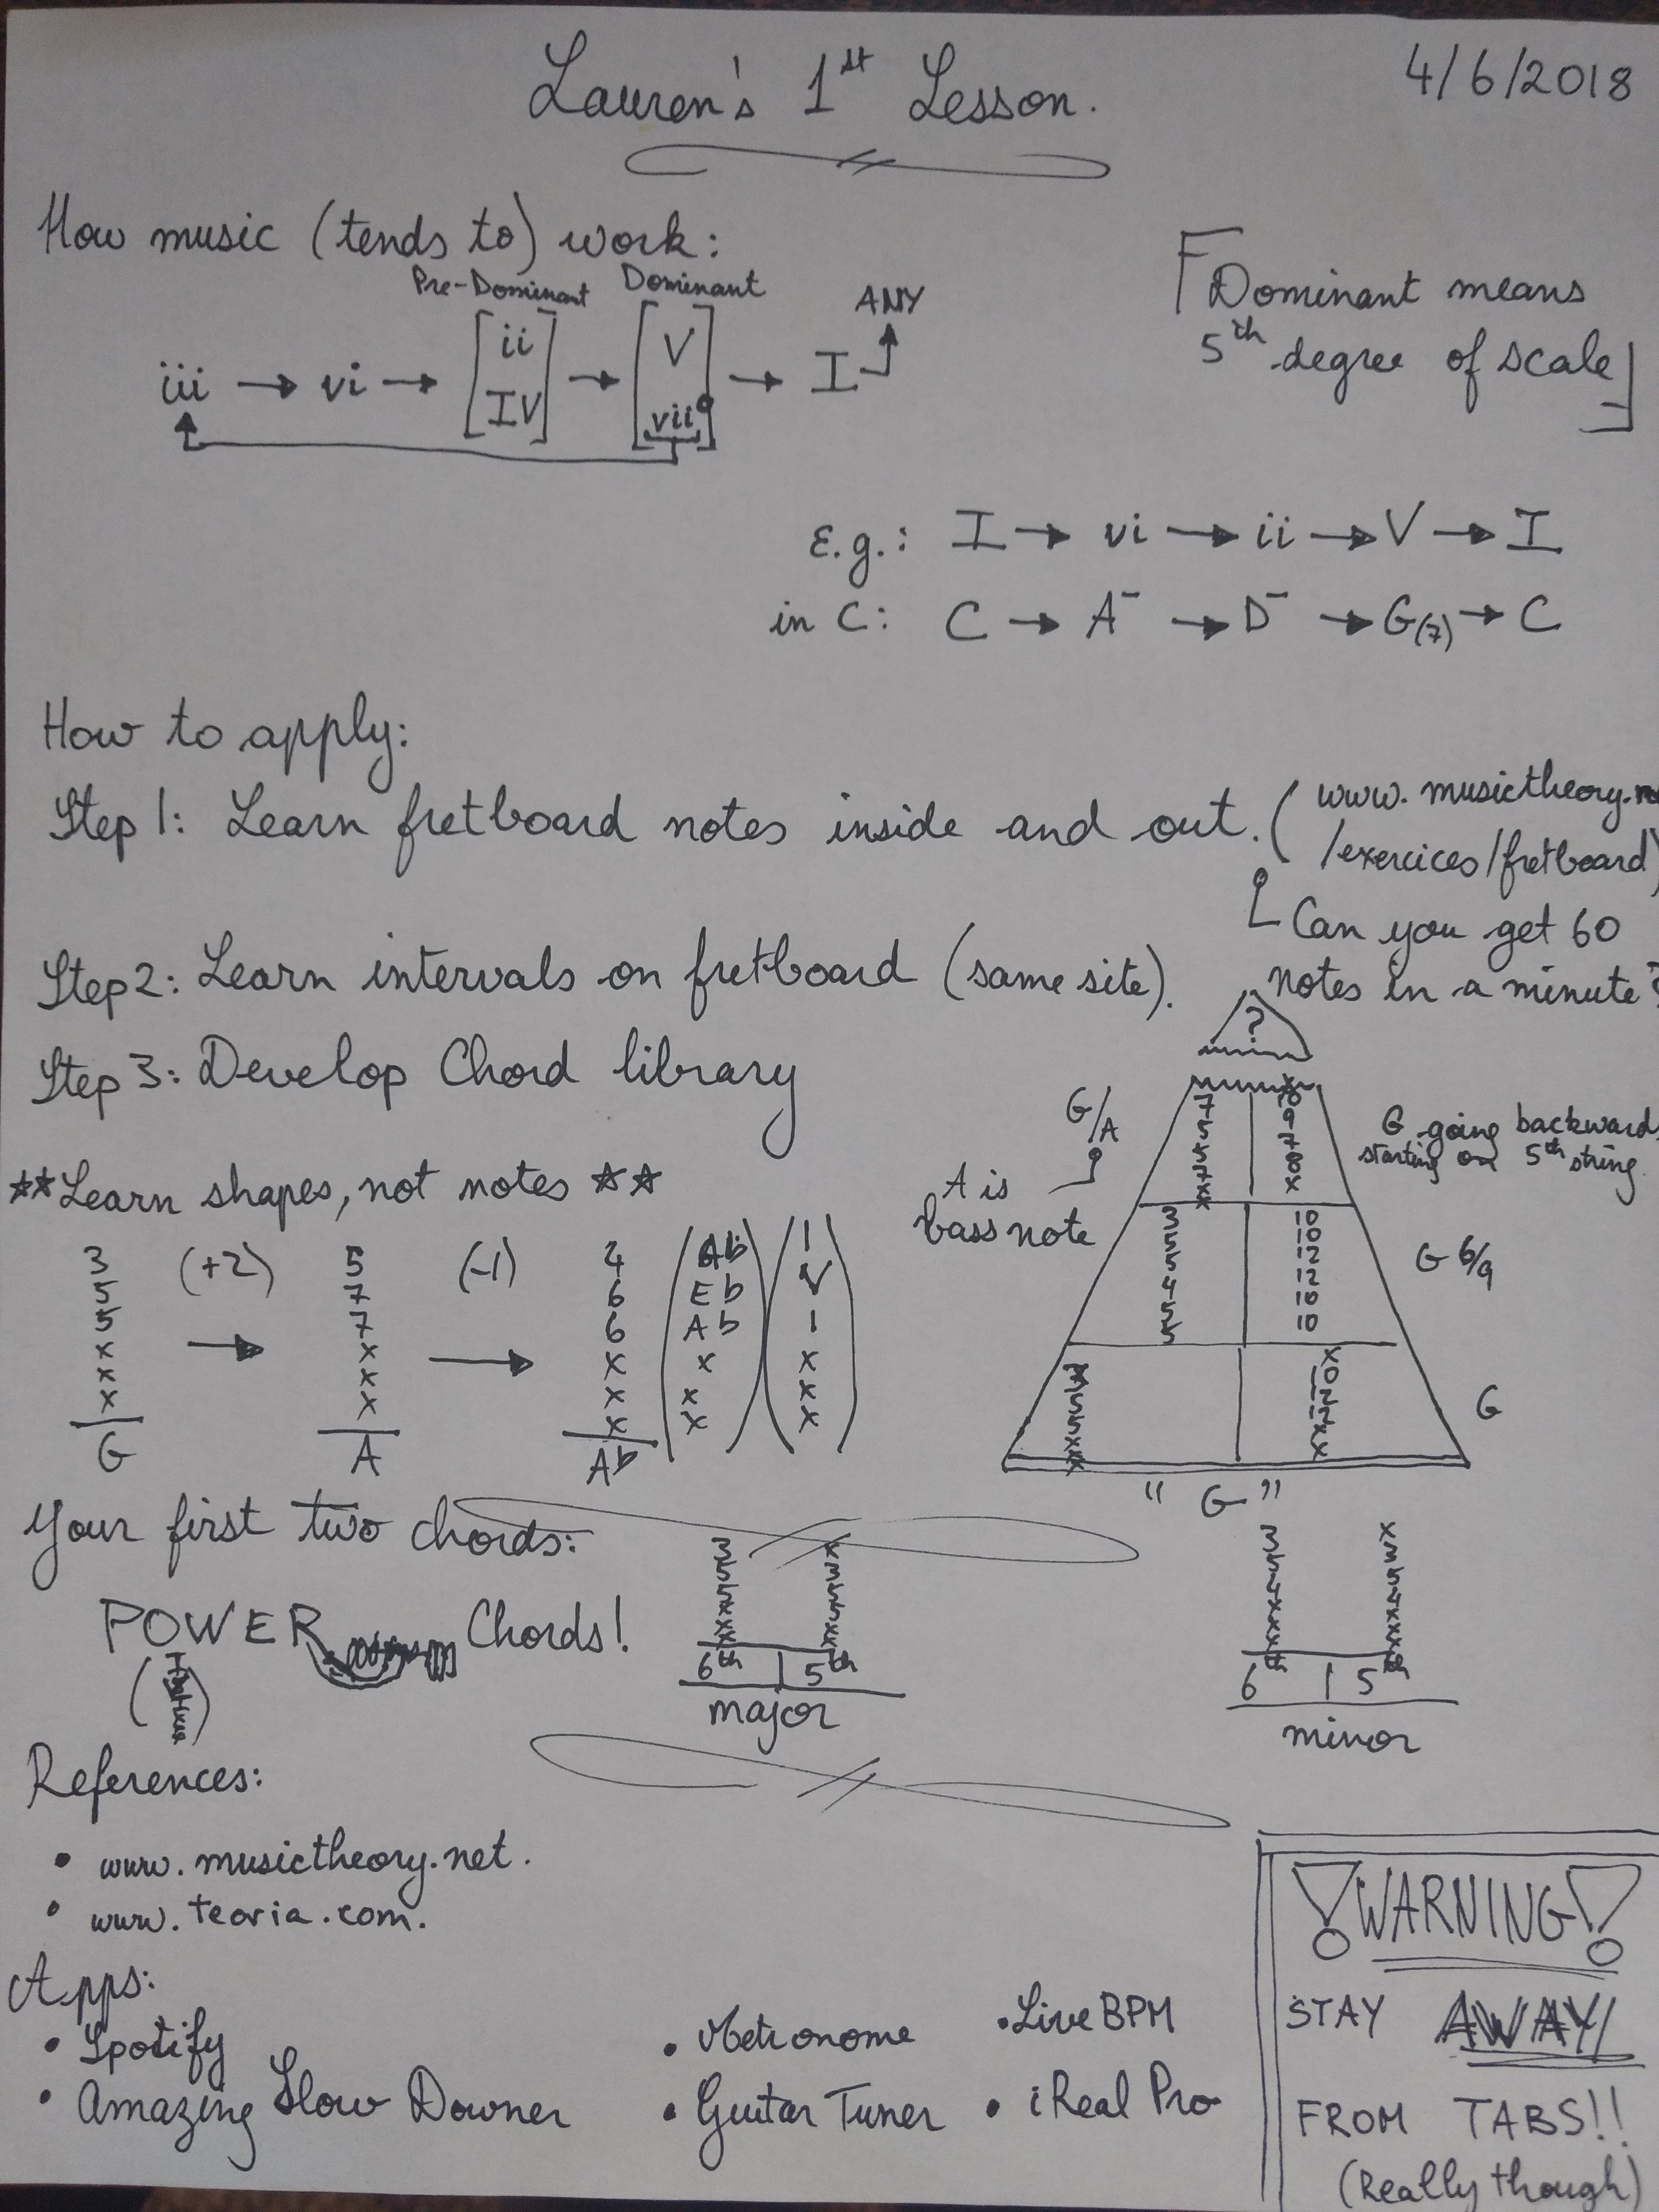 Lauren's 1st Lesson.
4/6/2018
How music (tends to) work:
Pre-Dominant Dominant
ANY
iii → vi → [ii IV] → [V vii°] → I
Dominant means
5th degree of scale
E.g.: I → vi → ii → V → I
in C: C → A- → D- → G(7) → C
How to apply:
Step 1: Learn fretboard notes inside and out. (www.musictheory.
/exercices/fretboard)
Can you get 60
notes in a minute?
Step 2: Learn intervals on fretboard (same site).
Step 3: Develop Chord library
**Learn shapes, not notes **
3 (+2) 5 (-1) 4 (Ab) (1)
5 7 6 Eb V
5 → 7 → 6 Ab 1
x x x x x
x x x x x
x x x x x
G A Ab
?
G/A
A is
bass note
7 5 5 7 x x
x 10 9 7 8 x
G going backward
starting on 5th string
3 5 5 4 5 5
10 10 12 12 10 10
G 6/9
5 5 x x x
x 10 12 12 x x
G
"G"
Your first two chords:
POWER Chords!
3 5 5 x x x
x 3 5 5 x x
6th | 5th
major
3 5 x x x
x 3 5 4 x x
6th | 5th
minor
References:
• www.musictheory.net.
• www.teoria.com.
Apps:
• Spotify
• Amazing Slow Downer
• Metronome
• Guitar Tuner
• LiveBPM
• iReal Pro
!WARNING!
STAY AWAY
FROM TABS!!
(Really though)